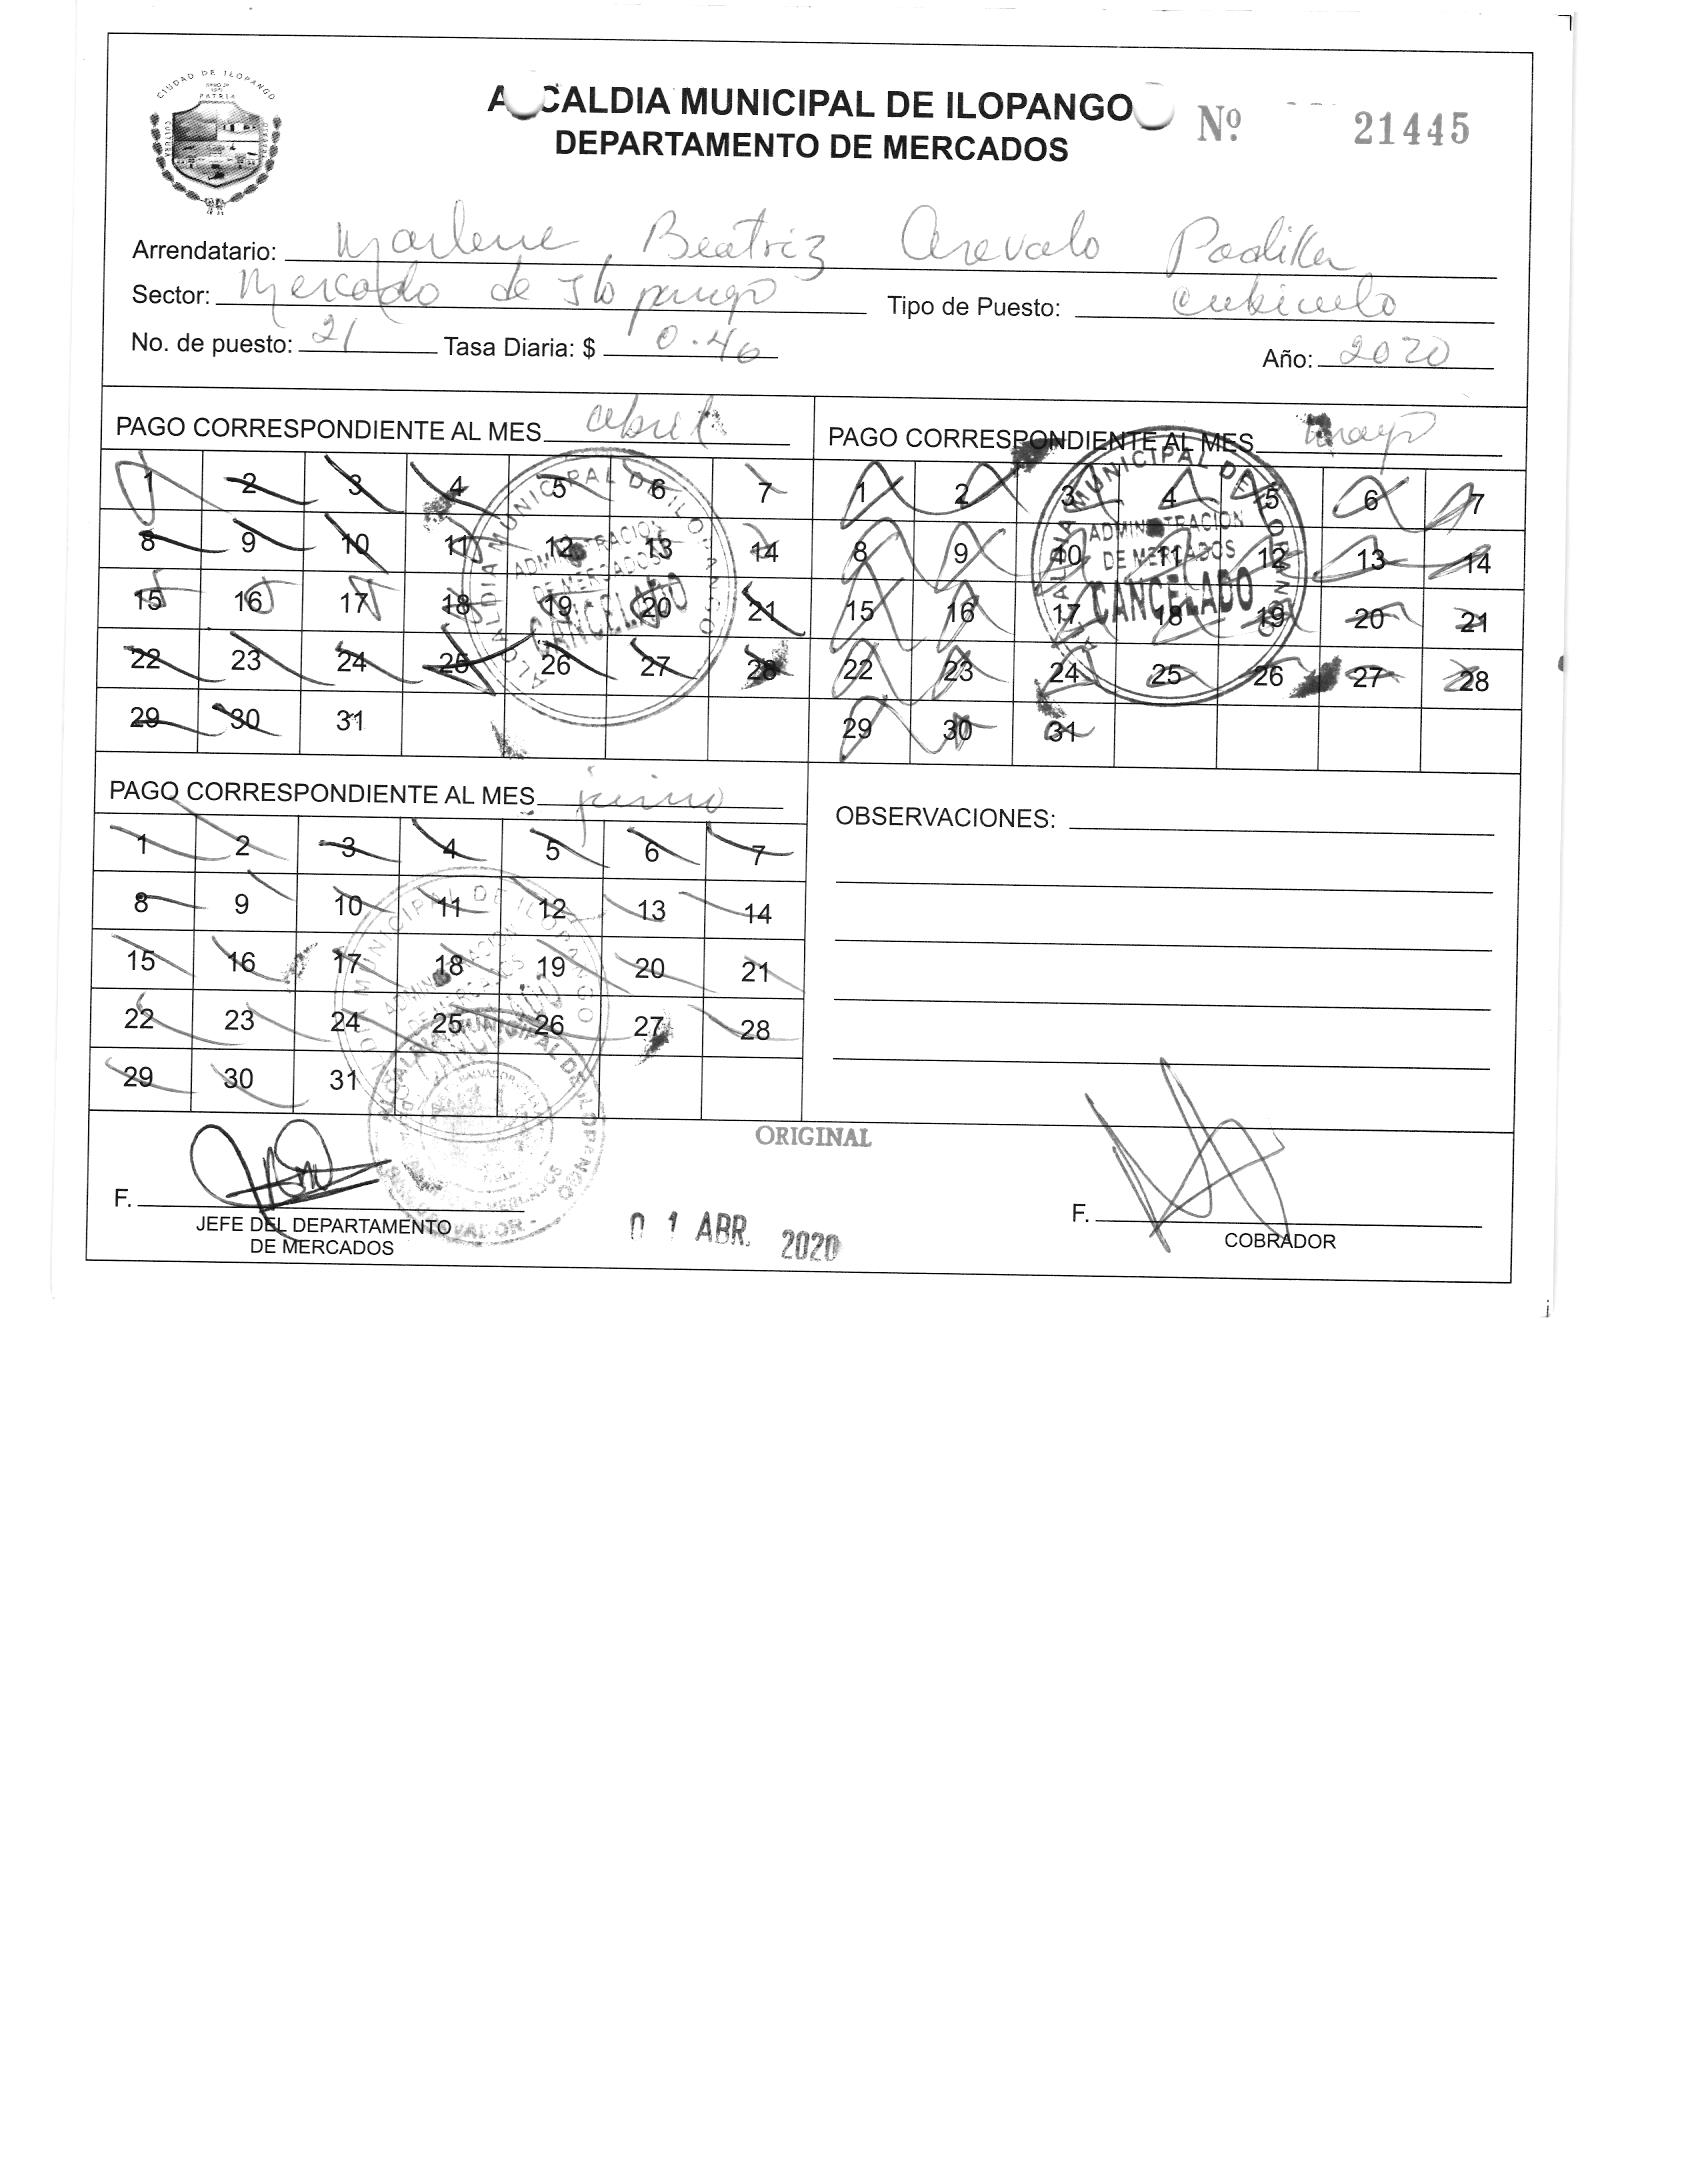 CIUDAD DE ILOPANGO
PATRIA
ALCALDIA MUNICIPAL DE ILOPANGO
DEPARTAMENTO DE MERCADOS
Nº 21445
Arrendatario: Marlene Beatriz Arevalo Padilla
Sector: Mercado de Ilopango Tipo de Puesto: cubiculo
No. de puesto: 21 Tasa Diaria: $ 0.46 Año: 2020
PAGO CORRESPONDIENTE AL MES abril
1 2 3 4 5 6 7
8 9 10 11 12 13 14
15 16 17 18 19 20 21
22 23 24 25 26 27 28
29 30 31
ALCALDIA MUNICIPAL DE ILOPANGO
ADMINISTRACION
DE MERCADOS
CANCELADO
PAGO CORRESPONDIENTE AL MES mayo
1 2 3 4 5 6 7
8 9 10 11 12 13 14
15 16 17 18 19 20 21
22 23 24 25 26 27 28
29 30 31
ALCALDIA MUNICIPAL DE ILOPANGO
ADMINISTRACION
DE MERCADOS
CANCELADO
PAGO CORRESPONDIENTE AL MES junio
1 2 3 4 5 6 7
8 9 10 11 12 13 14
15 16 17 18 19 20 21
22 23 24 25 26 27 28
29 30 31
OBSERVACIONES:
ORIGINAL
F.
JEFE DEL DEPARTAMENTO
DE MERCADOS
01 ABR. 2020
F.
COBRADOR